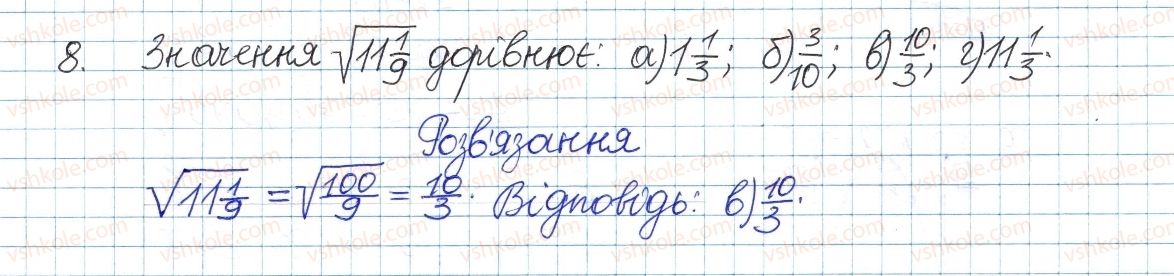 8. Значення √11 1/9 дорівнює: а) 1 1/3; б) 3/10; в) 10/3; г) 11 1/3.
Розв'язання
√11 1/9 = √100/9 = 10/3. Відповідь: в) 10/3.